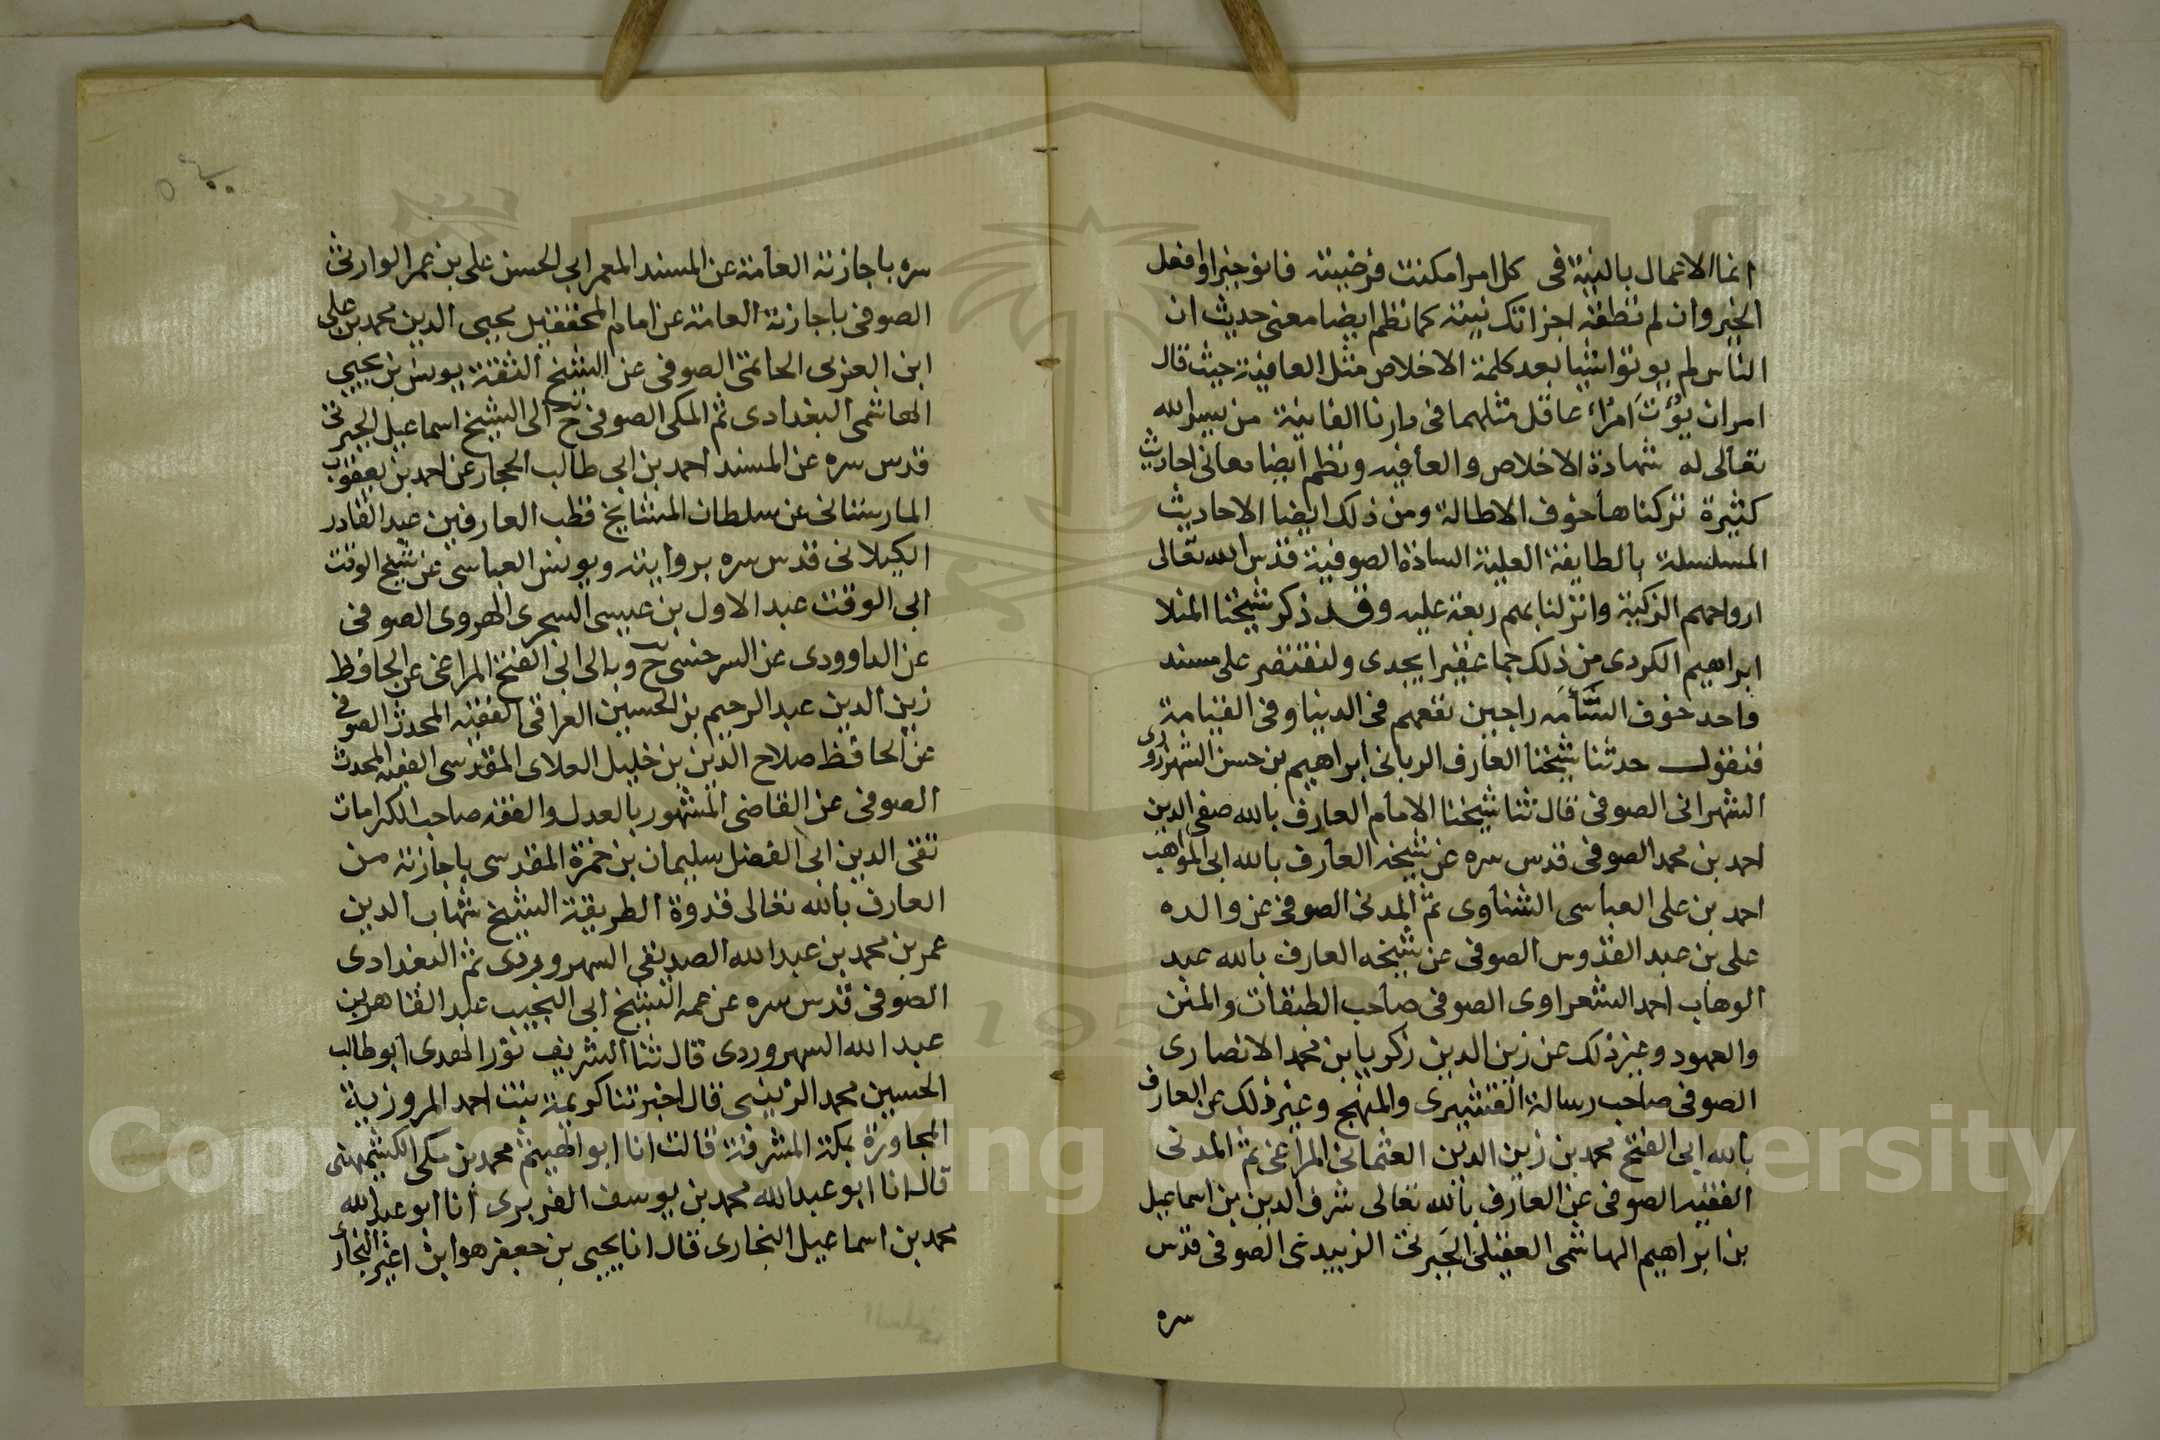 انما الاعمال بالنية فى كل امر امكنت فرضيته فانو خيرا وافعل
الخير وان لم تطقه اجزاتك نيته كما نظم ايضا معنى حديث ان
الناس لم يوتوا شيا بعد كلمة الاخلاص مثل العافية حيث قال
امران يؤت امرء عاقل مثلهما فى دارنا الفانية من يسر الله
تعالى له شهادة الاخلاص والعافيه ونظم ايضا معانى احاديث
كثيرة تركناها خوف الاطالة ومن ذلك ايضا الاحاديث
المسلسلة بالطايفة العلية السادة الصوفية قدس الله تعالى
ارواحهم الزكية وانزلنا بهم ربعة عليه وقد ذكر شيخنا المنلا
ابراهيم الكردى من ذلك جما غفيرا يجدى ولنقتصر على مسند
واحد خوف السآمه راجين نفعهم فى الدنيا وفى القيامة
فنقول حدثنا شيخنا العارف الربانى ابراهيم بن حسن الشهرزورى
الشهرانى الصوفى قال ثنا شيخنا الامام العارف بالله صفى الدين
احمد بن محمد الصوفى قدس سره عن شيخه العارف بالله ابى المواهب
احمد بن على العباسى الشناوى ثم المدنى الصوفى عن والده
على بن عبد القدوس الصوفى عن شيخه العارف بالله عبد
الوهاب احمد الشعراوى الصوفى صاحب الطبقات والمنن
والعهود وغير ذلك عن زين الدين زكريا بن محمد الانصارى
الصوفى صاحب رسالة القشيرى والمنهج وغير ذلك عن العارف
بالله ابى الفتح محمد بن زين الدين العثمانى المراغى ثم المدنى
الفقيه الصوفى عن العارف بالله تعالى شرف الدين بن اسماعيل
بن ابراهيم الهاشمى العقيلى الجبرتى الزبيدى الصوفى قدس
سره
سره باجازته العامة عن المسند المعمر ابى الحسن على بن عمر الوارثى
الصوفى باجازته العامة عن امام المحققيل يحيى الدين محمد بن على
ابن العربى الحاتمى الصوفى عن الشيخ الثقة يونس بن يحيى
الهاشمى البغدادى ثم المكى الصوفى ح الى الشيخ اسماعيل الجبرتى
قدس سره عن المسند احمد بن ابى طالب الحجار عن احمد بن يعقوب
المارستانى عن سلطان المشايخ قطب العارفين عبد القادر
الكيلانى قدس سره بروايته ويونس العباسى عن شيخ الوقت
ابى الوقت عبد الاول بن عيسى السجزى الهروى الصوفى
عن الداوودى عن السرخسى ح وبه الى ابى الفتح المراغى عن الحافظ
زين الدين عبد الرحيم بن الحسين العراقى الفقيه المحدث الصوفى
عن الحافظ صلاح الدين بن خليل العلاى المقدسى الفقيه المحدث
الصوفى عن القاضى المشهور بالعدل والفقه صاحب الكرامات
تقى الدين ابى الفضل سليمان بن حمزة المقدسى باجازته من
العارف بالله تعالى قدوة الطريقة الشيخ شهاب الدين
عمر بن محمد بن عبد الله الصديقى السهروردى ثم البغدادى
الصوفى قدس سره عن عمه الشيخ ابى النجيب عبد القاهر بن
عبد الله السهروردى قال ثنا الشريف نور الهدى ابو طالب
الحسين محمد الزينبى قال اخبرتنا كريمة بنت احمد المروزية
المجاورة بمكة المشرفة قالت انا ابو الهيثم محمد بن مكى الكشميهنى
قال انا ابو عبد الله محمد بن يوسف الفربرى انا ابو عبد الله
محمد بن اسماعيل البخارى قال انا يحيى بن جعفر هو ابن اعين البخارى